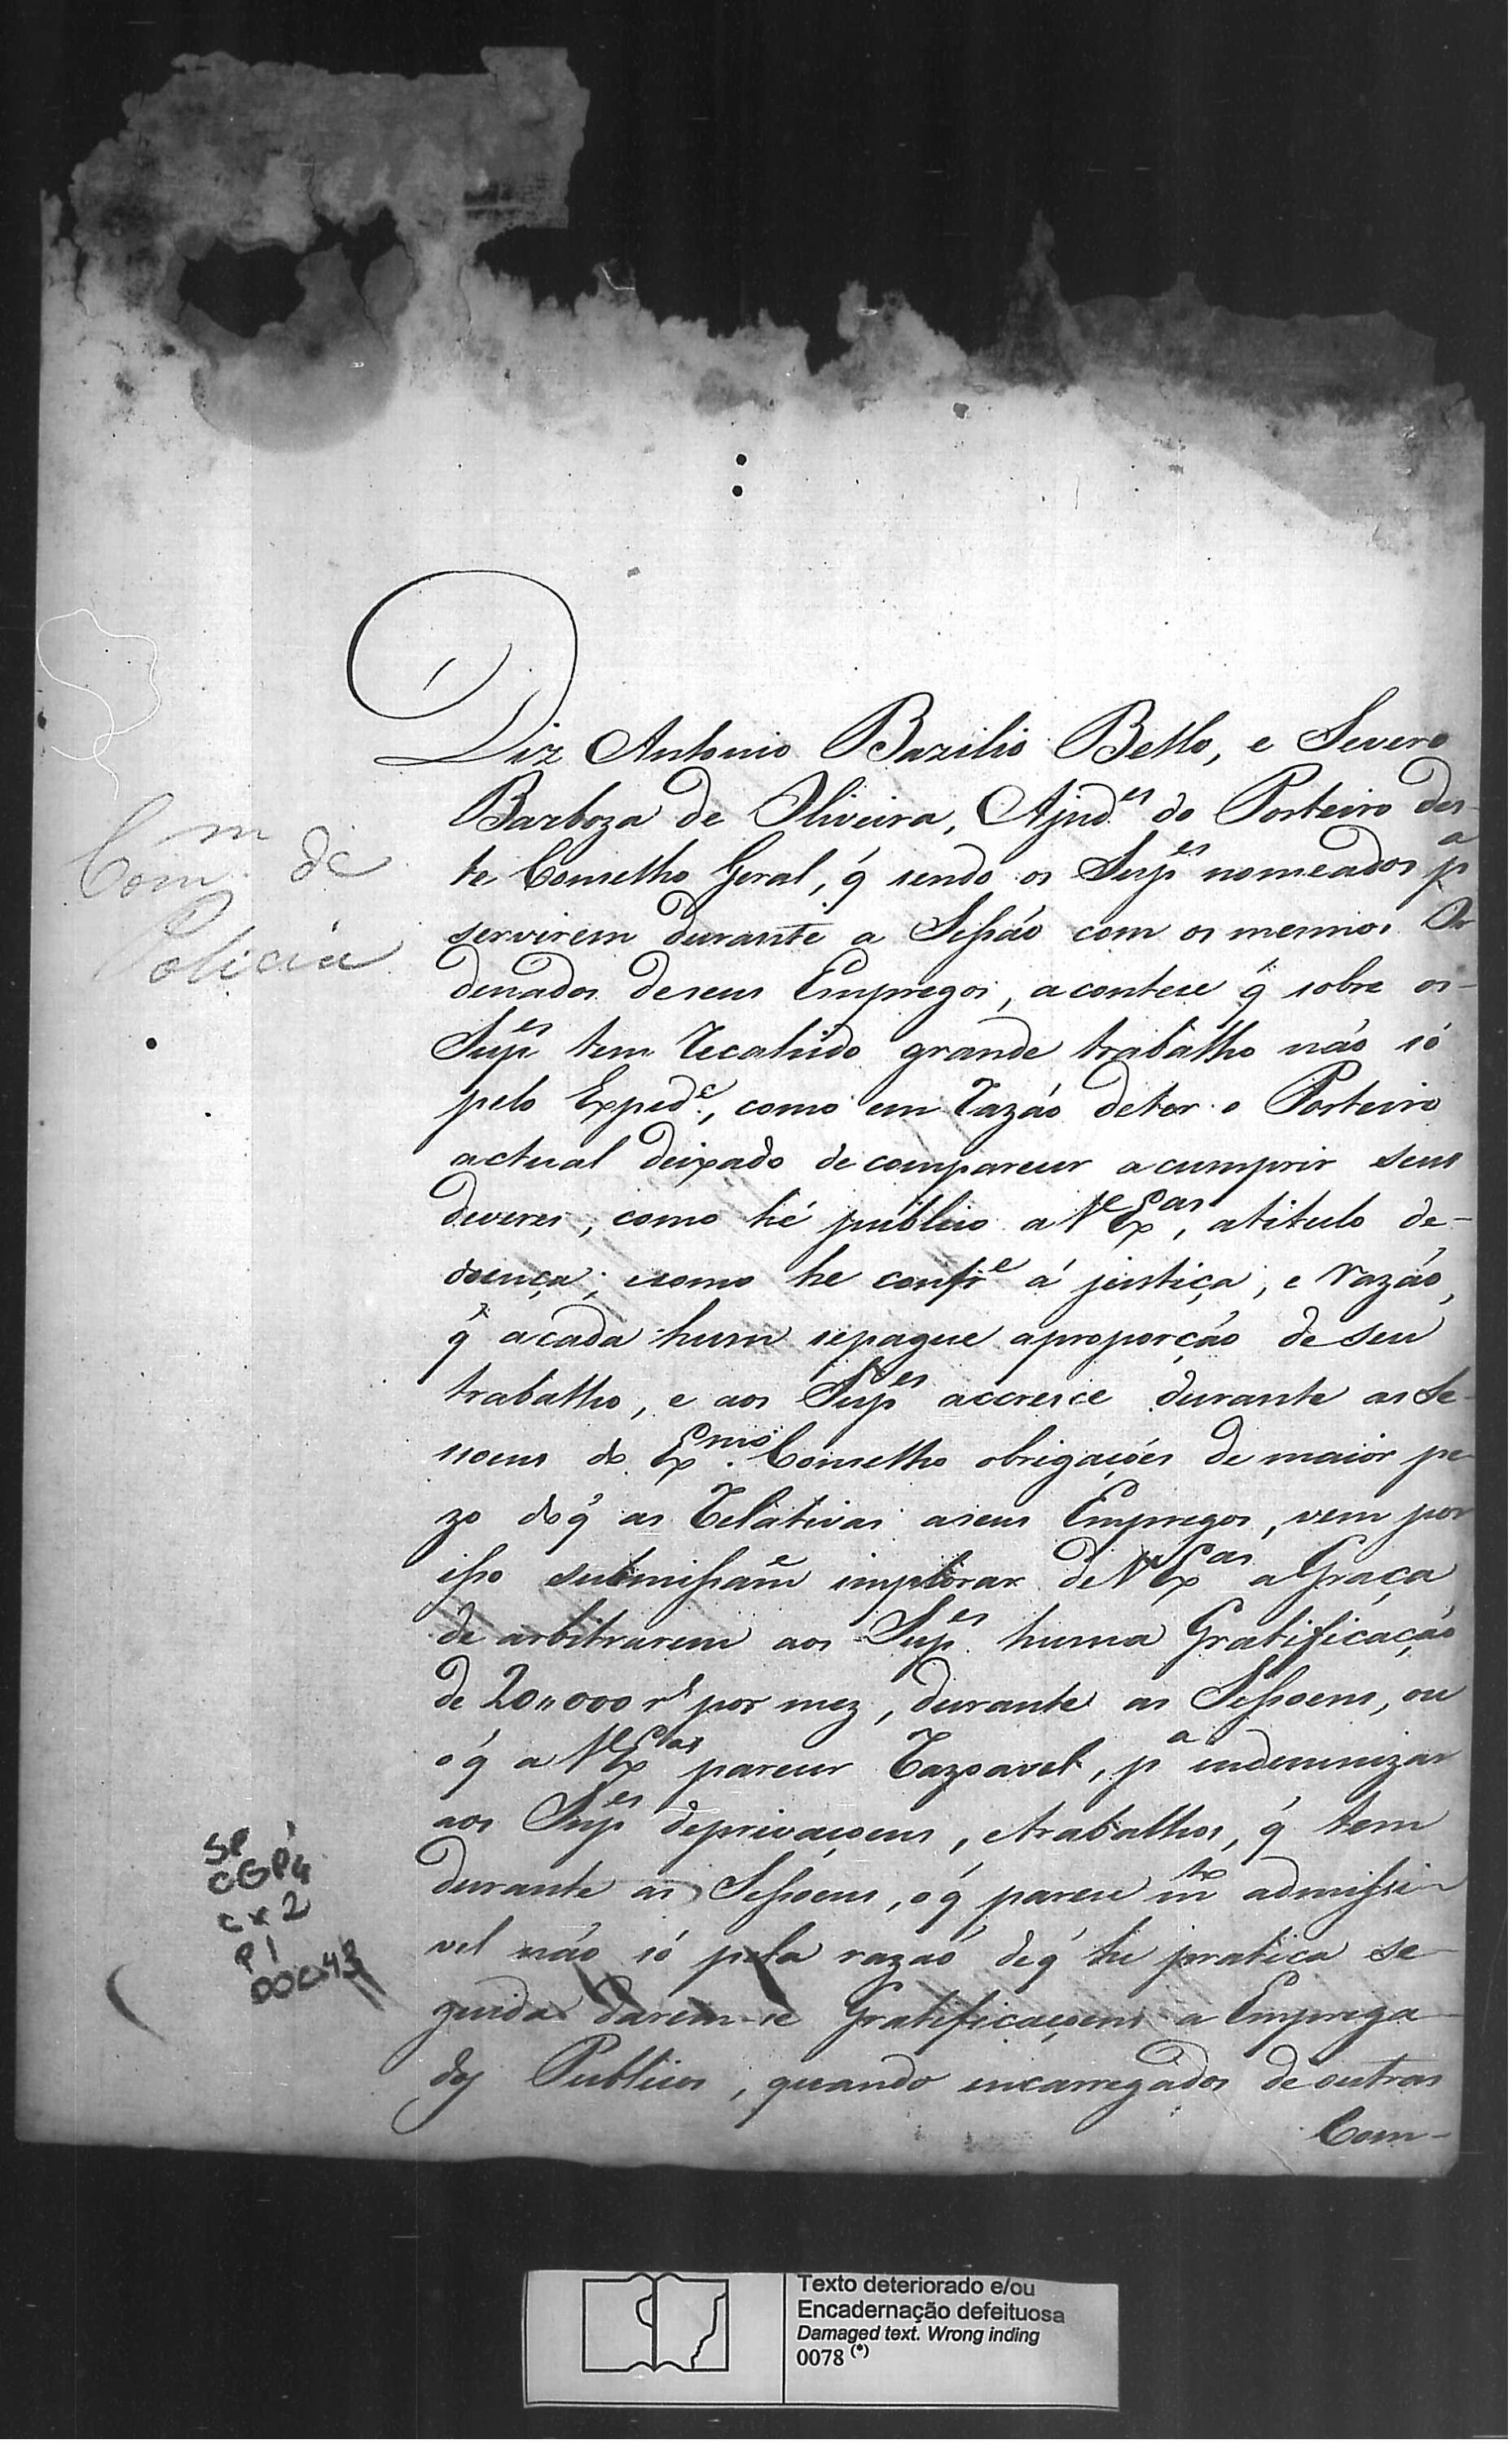 Diz Antonio Bazilio Bello, e Severo
Barboza de Oliveira, Ajud.es do Porteiro des-
te Conselho Geral, q̃ sendo os Sup.es nomeados p.a
servirem durante a Sessão com os mesmos Or
denados deseus Empregos, acontece q̃ sobre os-
Sup.es tem recahido grande trabalho não só
pelo Exped.e, como em razão deter o Porteiro
actual deixado decomparecer acumprir seus
deveres, como hé público a V.Ex.as, atitulo de-
doença; ecomo he confr.e á justiça, e razão,
q̃ acada hum sepague aproporção de seu
trabalho, e aos Sup.es accresce durante as Se-
ssoens do Ex.mo Conselho obrigações de maior pe-
zo doq̃ as relativas aseus Empregos, vem por
isso submissam.e implorar de V.Ex.as a Graça
de arbitrarem aos Sup.es huma Gratificação
de 20"000 r.s por mez, durante as Sessoens, ou
oq̃ a V.Ex.as parecer razoavel, p.a indemnizar
aos Sup.es deprivaçoens, etrabalhos, q̃ tem
durante as Sessoens, oq̃ parece m.to admissi-
vel não só pela razaõ deq̃ he pratica se-
guida darem-se Gratificaçoens a Emprega-
dos Publicos, quando encarregados de outras
Com-
Com.m de
Policia
SP
CGP4
cx 2
P1
DOC.43
Texto deteriorado e/ou
Encadernação defeituosa
Damaged text. Wrong inding
0078 (*)